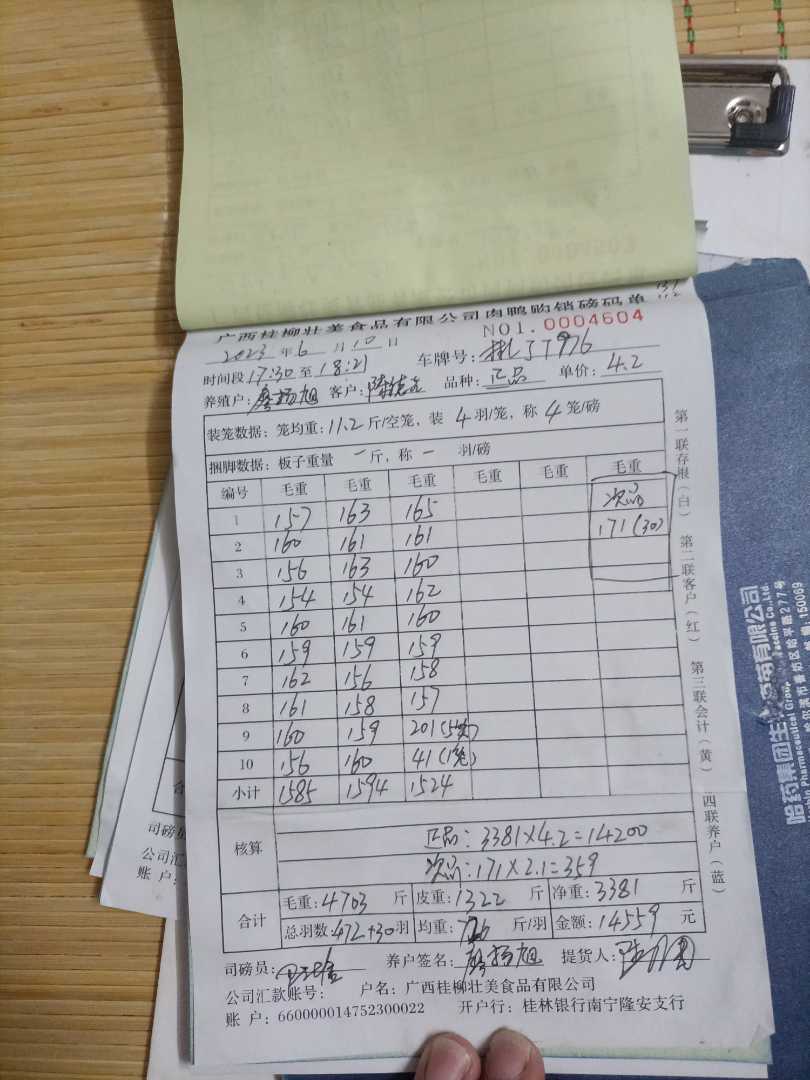 广西桂柳壮美食品有限公司肉鸭购销磅码单
NO1. 0004604
2023 年 6 月 10 日
时间段 17:30 至 18:21 车牌号:
养殖户: 廖扬旭 客户: 品种: 正品 单价: 4.2
装笼数据: 笼均重: 11.2 斤/空笼, 装 4 羽/笼, 称 4 笼/磅
捆脚数据: 板子重量 一 斤, 称 一 羽/磅
编号 毛重 毛重 毛重 毛重 毛重 毛重
次品
1 157 163 165
171(30)
2 160 161 161
3 156 163 160
4 154 154 162
5 160 161 160
6 159 159 159
7 162 156 158
8 161 158 157
9 160 159 201(5笼)
10 156 160 41(1笼)
小计 1585 1594 1524
核算 正品: 3381×4.2=14200
次品: 171×2.1=359
合计 毛重: 4703 斤 皮重: 1322 斤 净重: 3381 斤
总羽数: 472+30 羽 均重: 斤/羽 金额: 14559 元
司磅员: 养户签名: 廖扬旭 提货人:
公司汇款账号: 户名: 广西桂柳壮美食品有限公司
账 户: 660000014752300022 开户行: 桂林银行南宁隆安支行
第一联存根(白) 第二联客户(红) 第三联会计(黄) 四联养户(蓝)
哈药集团生物疫苗有限公司
司磅员
公司汇
账 户: